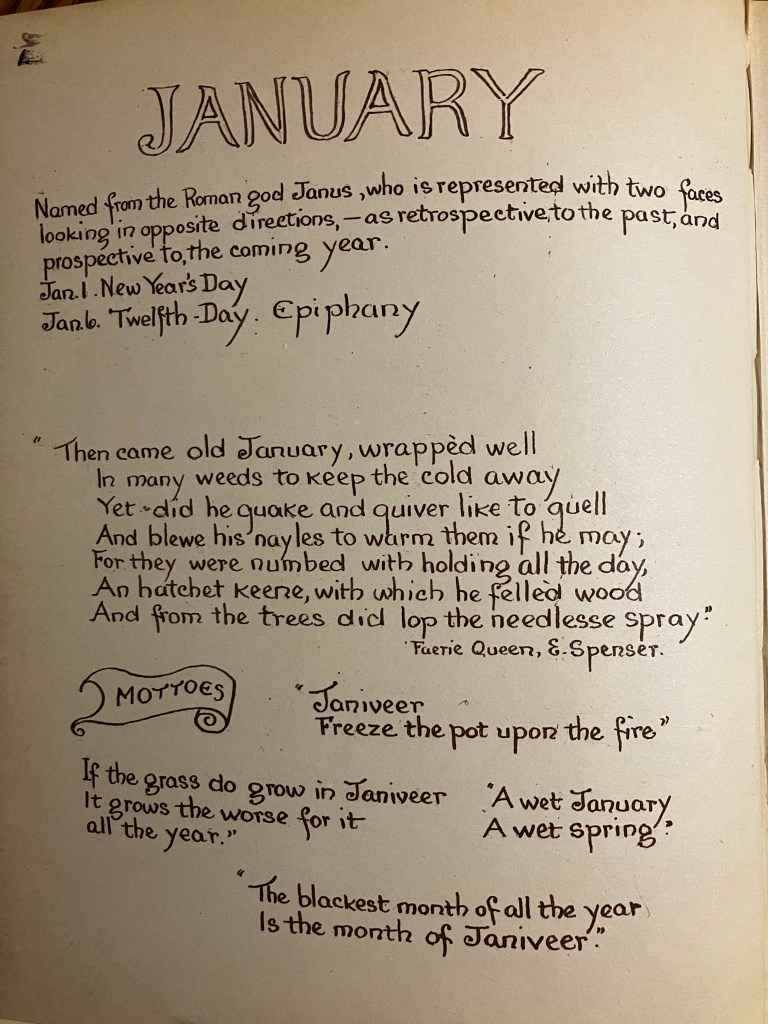 JANUARY
Named from the Roman god Janus, who is represented with two faces
looking in opposite directions, — as retrospective, to the past, and
prospective to, the coming year.
Jan. 1. New Year's Day
Jan. 6. Twelfth-Day. Epiphany
"Then came old January, wrappèd well
In many weeds to keep the cold away
Yet did he quake and quiver like to quell
And blewe his nayles to warm them if he may;
For they were numbed with holding all the day,
An hatchet keene, with which he fellèd wood
And from the trees did lop the needlesse spray."
Faerie Queen, E. Spenser.
MOTTOES
"Janiveer
Freeze the pot upon the fire"
If the grass do grow in Janiveer
It grows the worse for it
all the year."
"A wet January
A wet spring".
"The blackest month of all the year
Is the month of Janiveer".